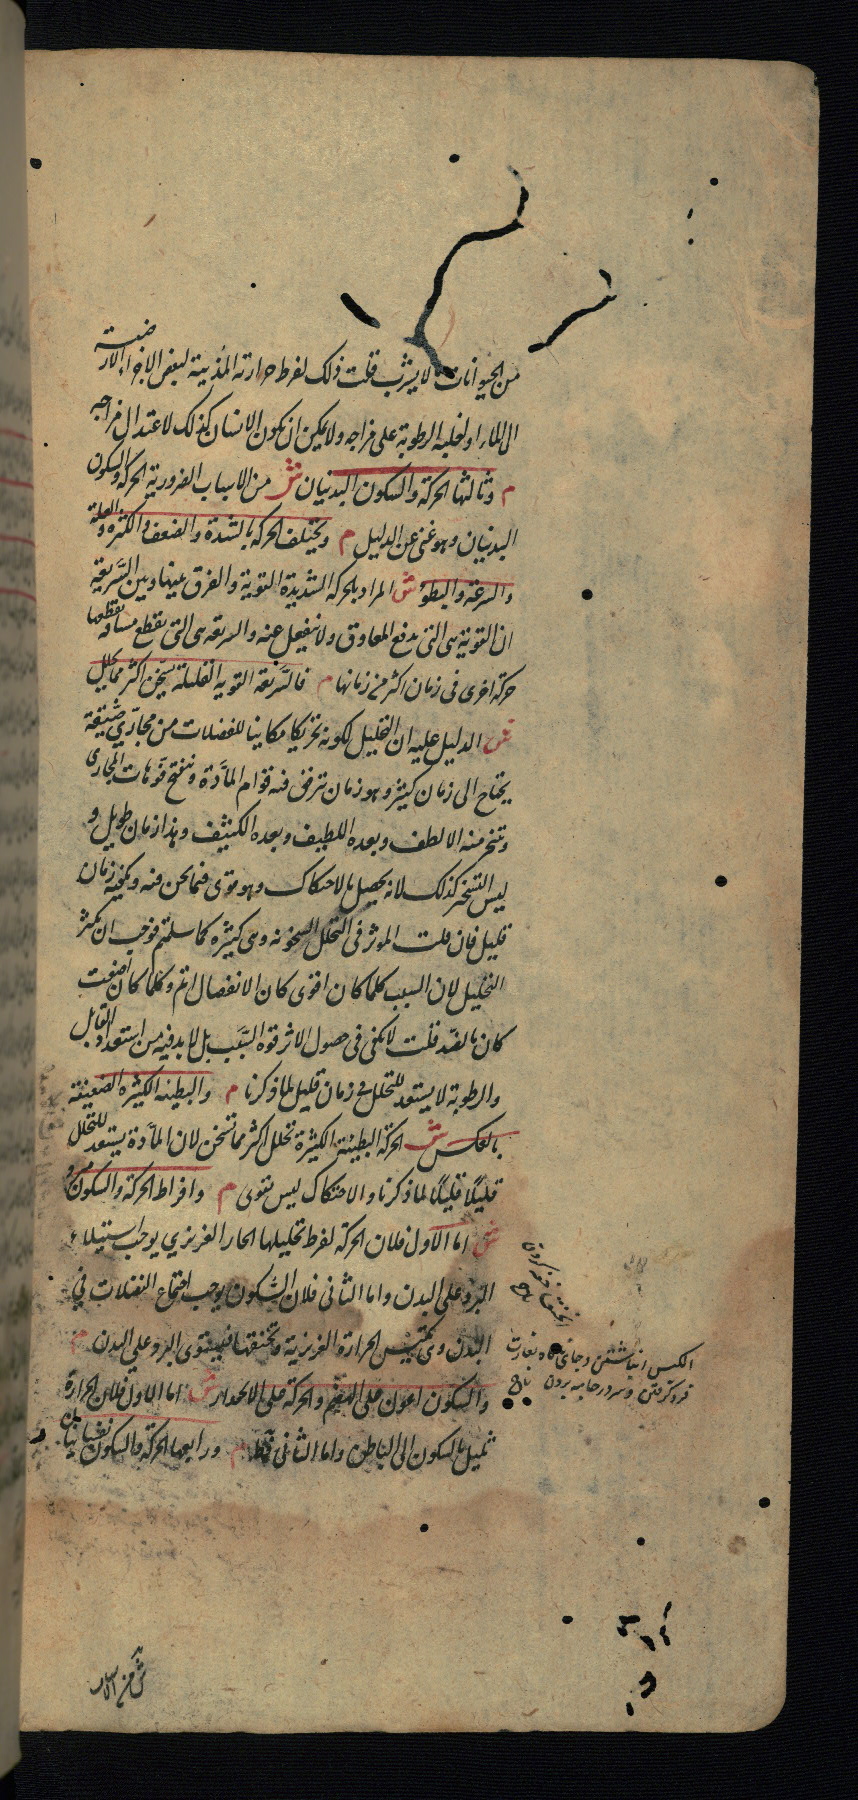 من الحيوانات لا يشرب قلت ذلك لفرط حرارته المذيبة لبعض الاجزاء الارضية
الى الماء او لغلبة الرطوبة على مزاجه ولا يمكن ان يكون الانسان كذلك لاعتدال مزاجه
م وثالثها الحركة والسكون البدنيان ش من الاسباب الضرورية الحركة والسكون
البدنيان وهو غنى عن الدليل م ويختلف الحركة بالشدة والضعف والكثرة والقلة
والسرعة والبطؤ ش المراد بالحركة الشديدة القوية والفرق بينها وبين السريعة
ان القوية هى التى يدفع المعاوق ولا ينفعل عنه والسريعة هى التى يقطع مسافة يقطعها
حركة اخرى فى زمان اكثر من زمانها م فالسريعة القوية القليلة يسخن اكثر مما يحلل
ش الدليل عليه ان التحليل لكونه تحريكا مكانيا للفضلات من مجارى ضيقة
يحتاج الى زمان كثير وهو زمان ترقق فيه قوام المادة وينفتح فوهات المجارى
وتتبخر منه الالطف وبعده اللطيف وبعده الكثيف وهذا زمان طويل و
ليس التسخن كذلك لانه يحصل بالاحتكاك وهو قوى فيما نحن فيه ويكفيه زمان
قليل فان قلت الموثر فى التحلل السخونة وهى كثيرة كما سلمتم فوجب ان يكثر
التحليل لان السبب كلما كان اقوى كان الانفصال اتم وكلما كان اضعف
كان بالضد قلت لا يكفى فى حصول الاثر قوة السبب بل لا بد فيه من استعداد القابل
والرطوبة لا يستعد للتحلل فى زمان قليل لما ذكرنا م والبطيئة الكثيرة الضعيفة
بالعكس ش الحركة البطيئة الكثيرة تحلل اكثر مما تسخن لان المادة يستعد للتحلل
قليلا قليلا لما ذكرنا والاحتكاك ليس بقوى م وافراط الحركة والسكون مبرد
ش اما الاول فلان الحركة لفرط تحليلها الحار الغريزي يوجب استيلاء
البرد على البدن واما الثانى فلان السكون يوجب اجتماع الفضلات في
البدن وتكتبس الحرارة الغريزية وتختنقها فيستوى البرد على البدن م
والسكون اعون على الهضم والحركة على الانحدار ش اما الاول فلان الحرارة
تميل بالسكون الى الباطن واما الثانى فظ م ورابعها الحركة والسكون نفسانيان
الكبس انباشتن
فرو گرفتن وسر در جامه بردن تاج